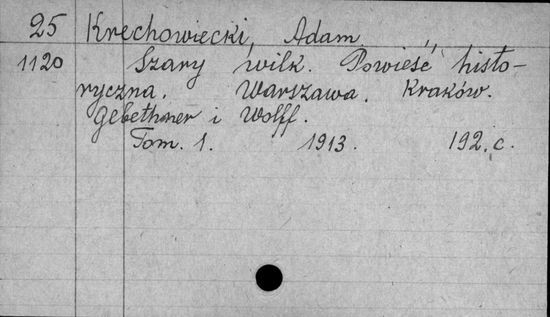 25 Krechowiecki, Adam
1120 Szary wilk. Powieść histo-
ryczna. Warszawa. Kraków.
Gebethner i Wolff.
Tom. 1. 1913. 192. c.